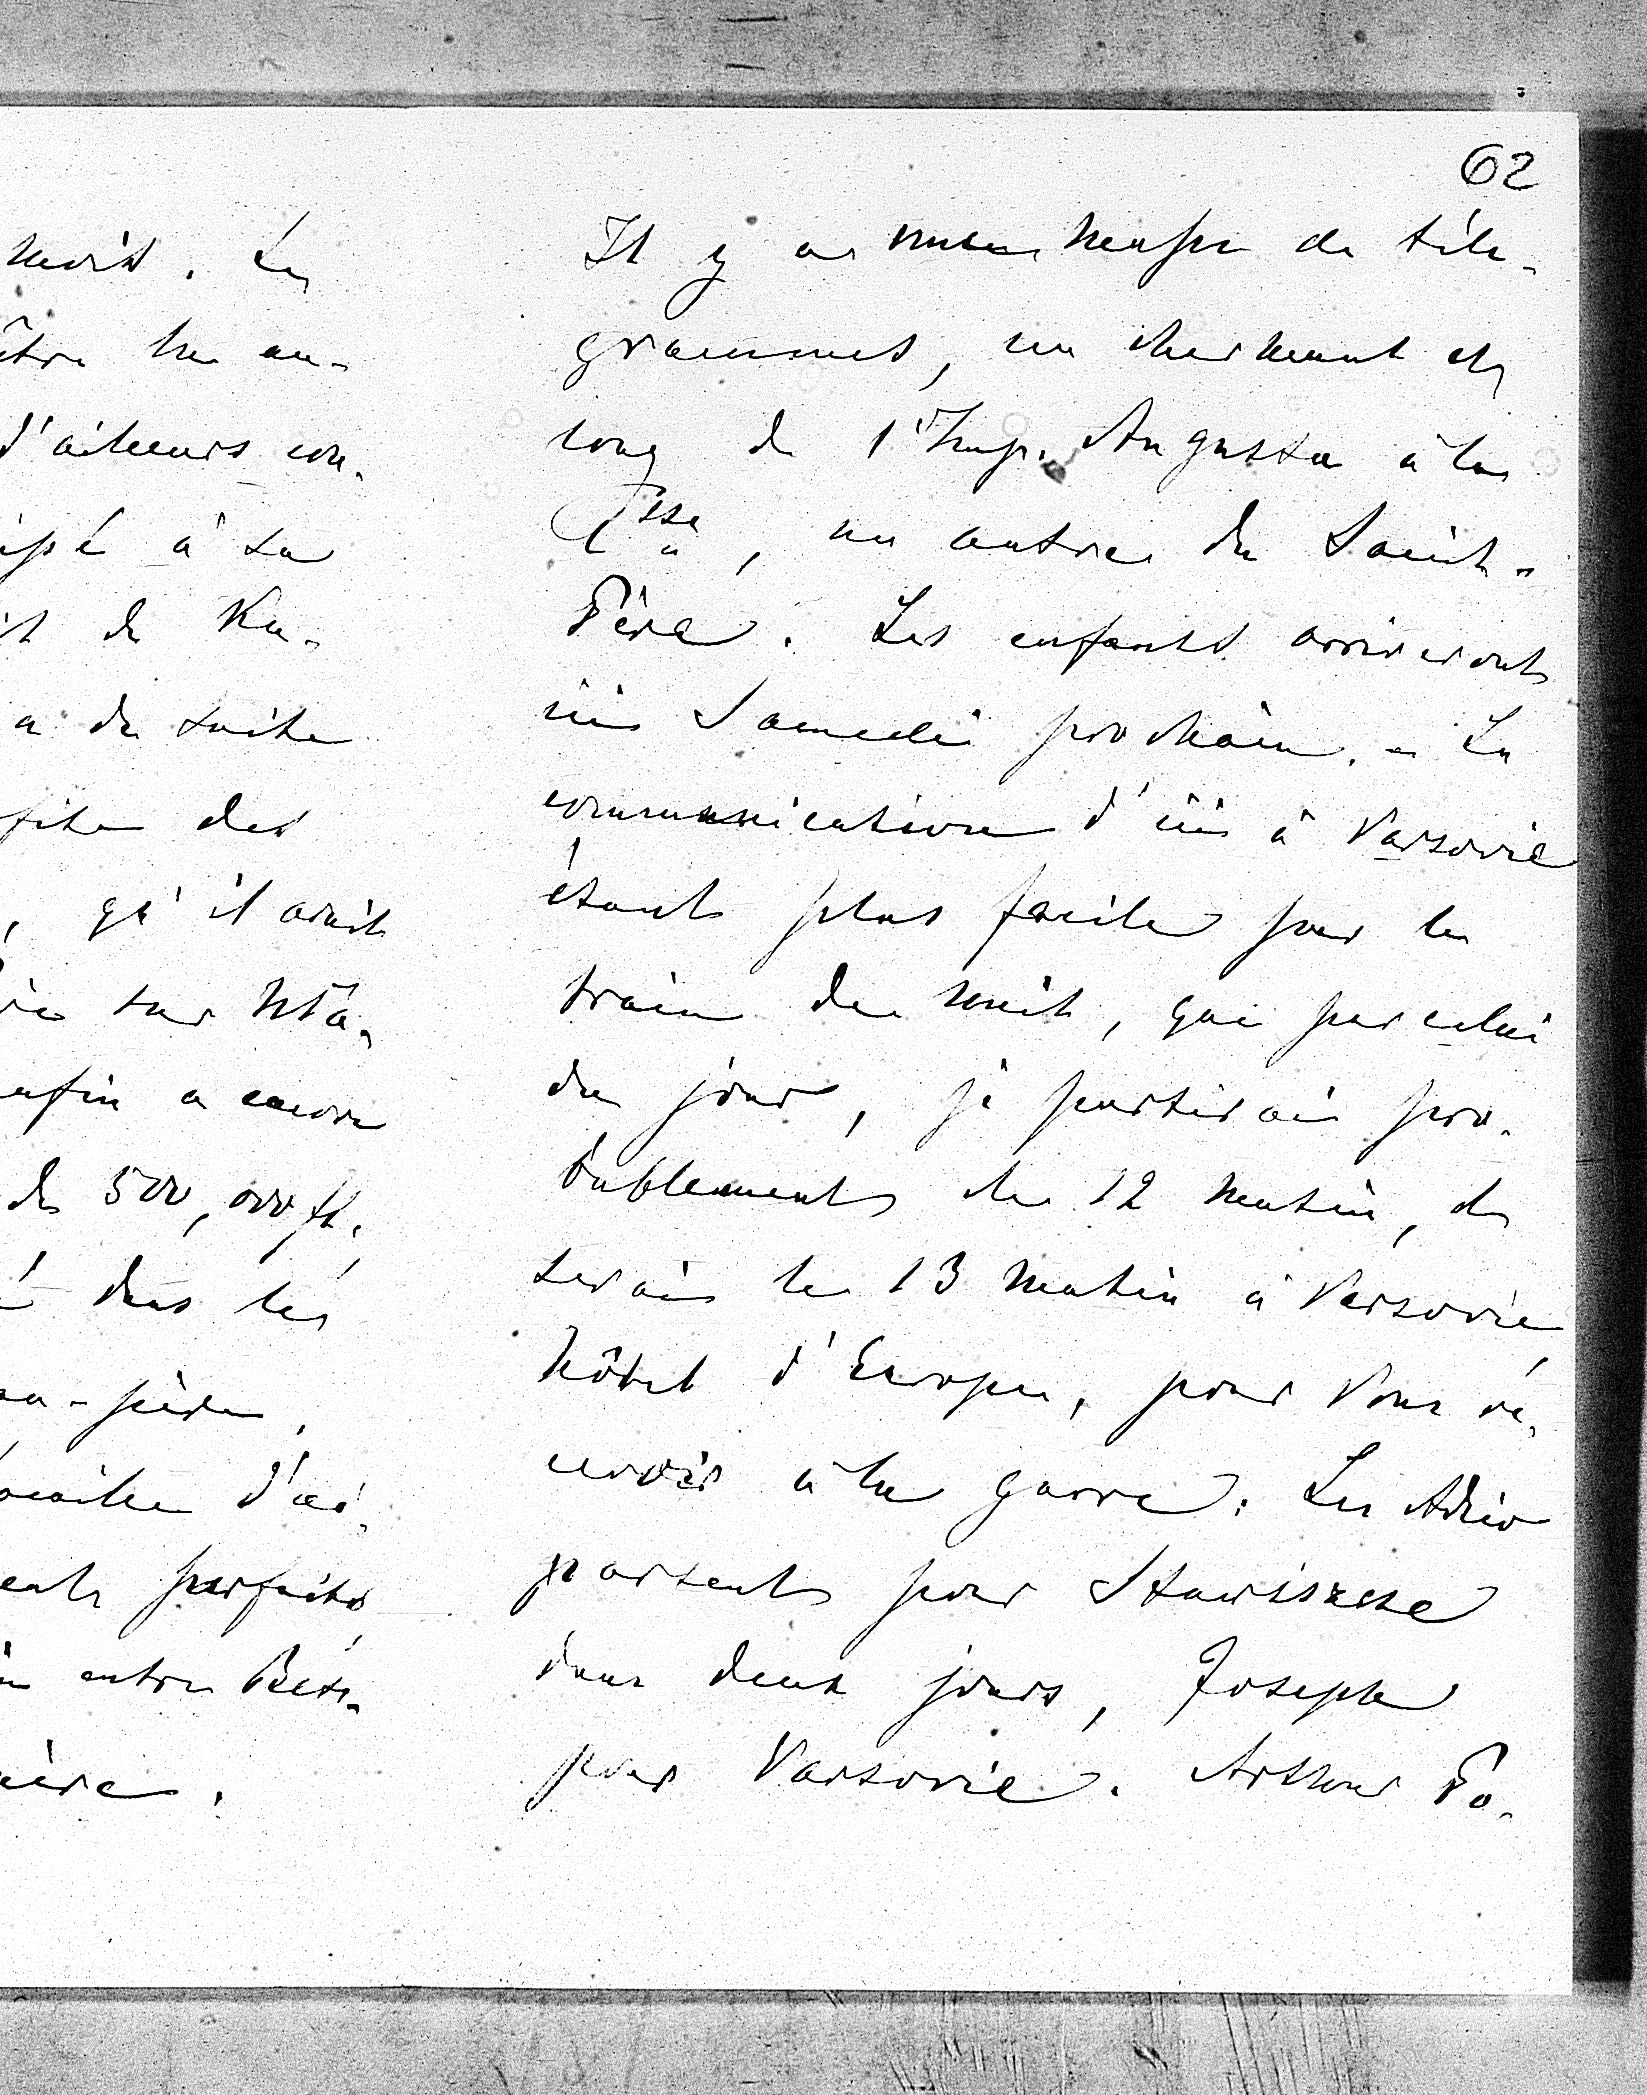 62
mois. Les
être un an-
d'ailleurs con-
ipé à sa
it de Ku-
a de suite
fite des
, qu'il avait
ie sur Wła-
enfin a encore
de 500,000 fl.
é dans les
au-père,
d'ai-
ents parfaits,
entre Bets-
ière.
Il y a une masse de télé-
grammes, un charmant et
long de l'Imp. Augusta à la
Psse, un autre du Saint-
Père. Les enfants arriveront
ici Samedi prochain. - La
communication d'ici à Varsovie
étant plus facile par le
train de nuit, que par celui
du jour, je partirai pro-
bablement le 12 matin, et
serais le 13 matin à Varsovie,
hôtel d'Europe, pour Vous re-
cevoir à la garre. Les Adzio
partent pour Stawiszcze
dans deux jours, Joseph
pour Varsovie. Arthur Po-